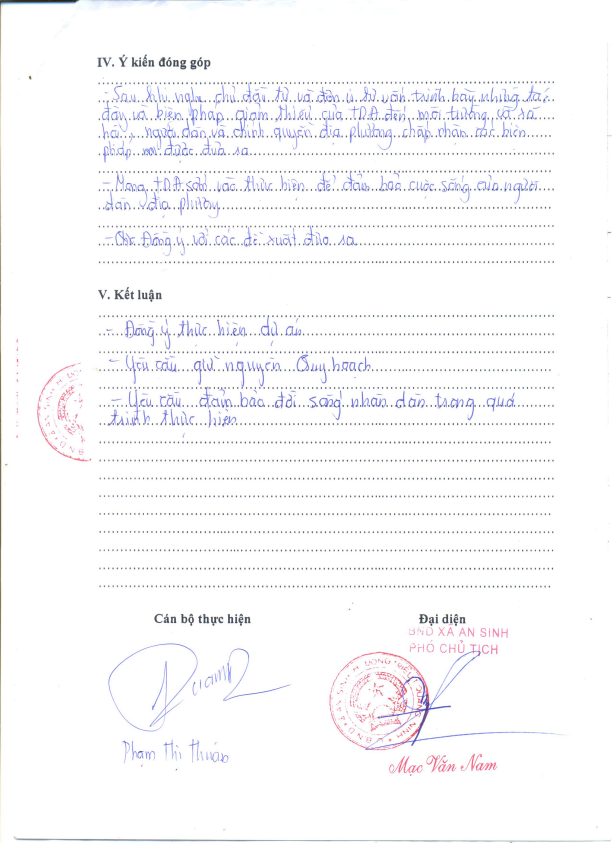 IV. Ý kiến đóng góp
- Sau khi nghe chủ đầu tư và đơn vị tư vấn trình bày những tác
động và biện pháp giảm thiểu của TDA đến môi trường và xã
hội, người dân và chính quyền địa phương chấp nhận các biện
pháp mà được đưa ra
- Mong TDA sớm vào thực hiện để đảm bảo cuộc sống của người
dân ở địa phương
- Đồng ý với các đề xuất đưa ra
V. Kết luận
- Đồng ý thực hiện dự án
- Yêu cầu giữ nguyên Quy hoạch
- Yêu cầu đảm bảo đời sống nhân dân trong quá
trình thực hiện
Cán bộ thực hiện
Đại diện
BND XÃ AN SINH
PHÓ CHỦ TỊCH
Phạm Thị
Mạc Văn Nam